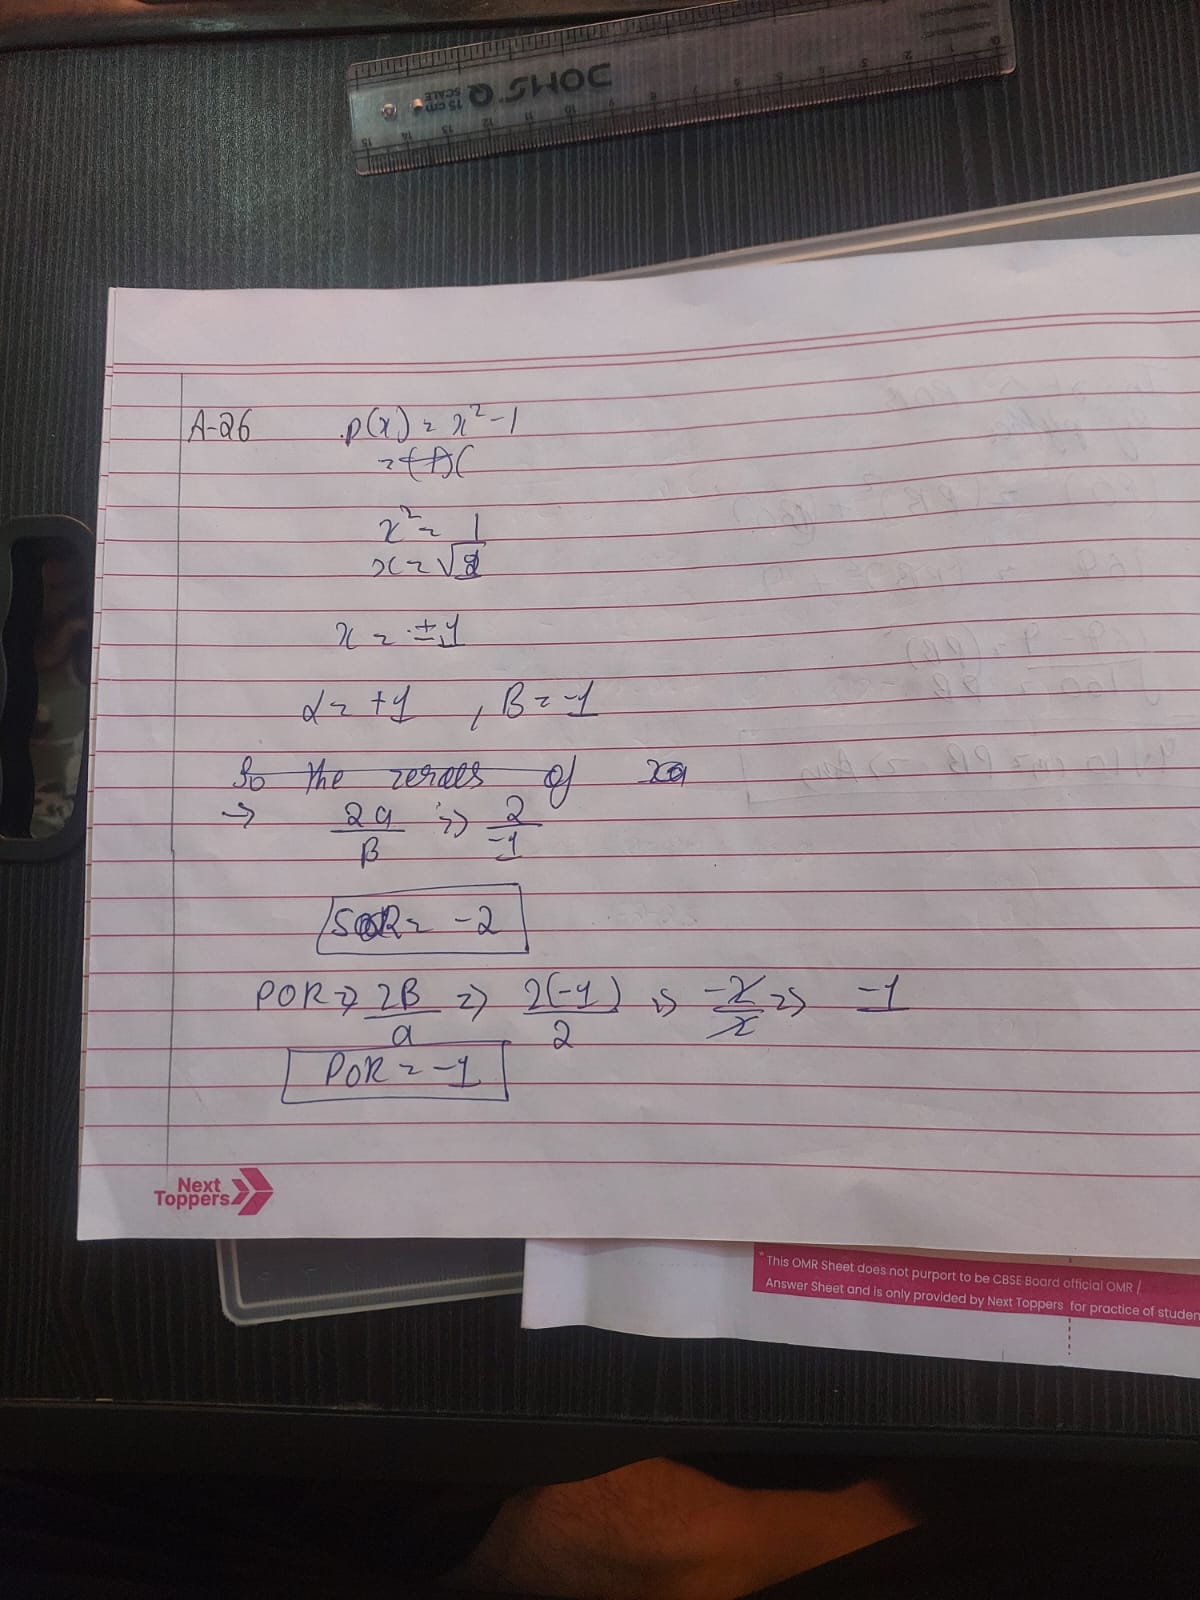 DOMS
15 cm
SCALE
A-26 p(x) = x² - 1
x² = 1
x = ±1
α = +1 , B = -1
So the zeroes of
→ 2a/B => 2/-1
SOR = -2
POR => 2B/a => 2(-1)/2 => -2/2 => -1
POR = -1
Next
Toppers
*This OMR Sheet does not purport to be CBSE Board official OMR /
Answer Sheet and is only provided by Next Toppers for practice of studen